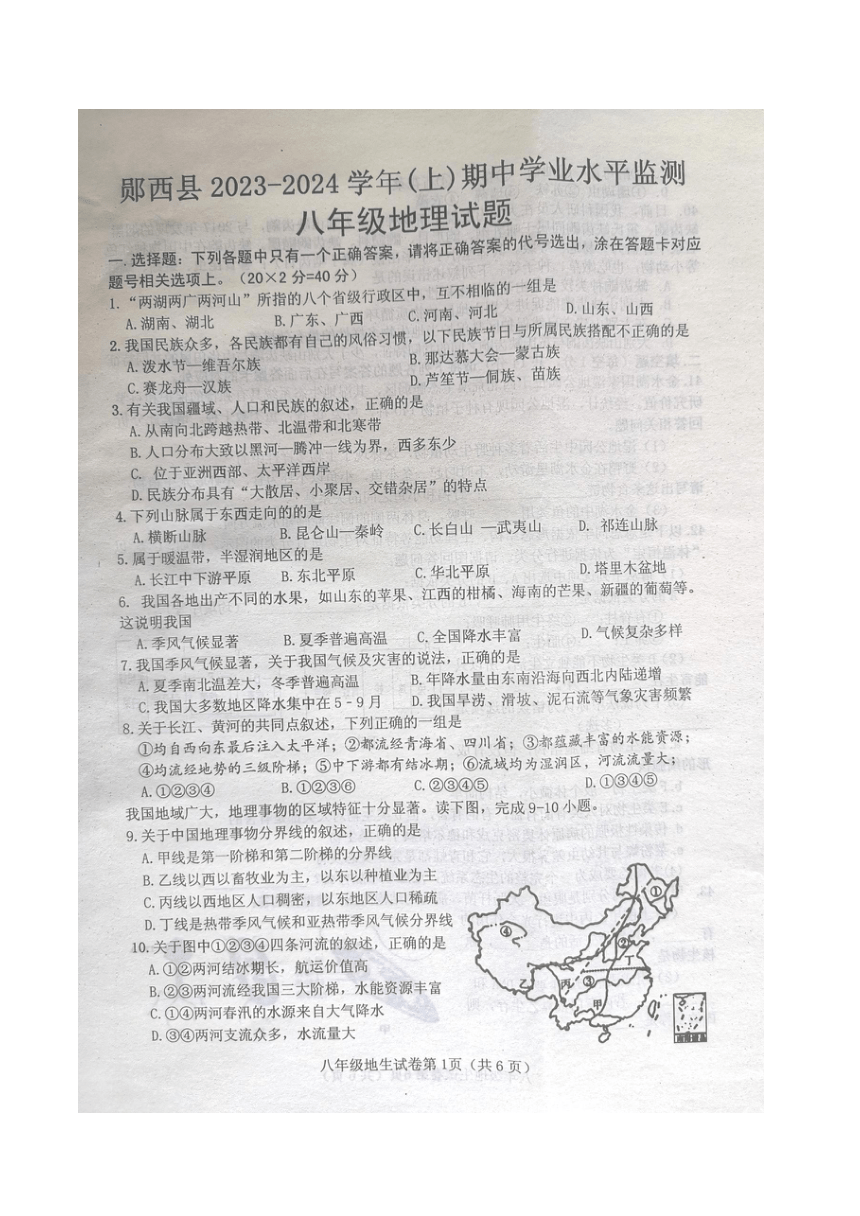 郧西县 2023-2024 学年(上)期中学业水平监测
八年级地理试题
一.选择题：下列各题中只有一个正确答案，请将正确答案的代号选出，涂在答题卡对应
题号相关选项上。（20×2 分=40 分）
1.“两湖两广两河山”所指的八个省级行政区中，互不相临的一组是
A.湖南、湖北 B.广东、广西 C.河南、河北 D.山东、山西
2.我国民族众多，各民族都有自己的风俗习惯，以下民族节日与所属民族搭配不正确的是
A.泼水节—维吾尔族 B.那达慕大会—蒙古族
C.赛龙舟—汉族 D.芦笙节—侗族、苗族
3.有关我国疆域、人口和民族的叙述，正确的是
A.从南向北跨越热带、北温带和北寒带
B.人口分布大致以黑河—腾冲一线为界，西多东少
C. 位于亚洲西部、太平洋西岸
D.民族分布具有“大散居、小聚居、交错杂居”的特点
4.下列山脉属于东西走向的的是
A.横断山脉 B.昆仑山—秦岭 C.长白山 —武夷山 D. 祁连山脉
5.属于暖温带，半湿润地区的是
A.长江中下游平原 B.东北平原 C.华北平原 D.塔里木盆地
6. 我国各地出产不同的水果，如山东的苹果、江西的柑橘、海南的芒果、新疆的葡萄等。
这说明我国
A.季风气候显著 B.夏季普遍高温 C.全国降水丰富 D.气候复杂多样
7.我国季风气候显著，关于我国气候及灾害的说法，正确的是
A.夏季南北温差大，冬季普遍高温 B.年降水量由东南沿海向西北内陆递增
C.我国大多数地区降水集中在 5－9 月 D.我国旱涝、滑坡、泥石流等气象灾害频繁
8.关于长江、黄河的共同点叙述，下列正确的一组是
①均自西向东最后注入太平洋；②都流经青海省、四川省；③都蕴藏丰富的水能资源；
④均流经地势的三级阶梯；⑤中下游都有结冰期；⑥流域均为湿润区，河流流量大；
A.①②③④ B.①②③⑥ C.②③④⑤ D.①③④⑤
我国地域广大，地理事物的区域特征十分显著。读下图，完成 9-10 小题。
9.关于中国地理事物分界线的叙述，正确的是
A.甲线是第一阶梯和第二阶梯的分界线
B.乙线以西以畜牧业为主，以东以种植业为主
C.丙线以西地区人口稠密，以东地区人口稀疏
D.丁线是热带季风气候和亚热带季风气候分界线
10.关于图中①②③④四条河流的叙述，正确的是
A.①②两河结冰期长，航运价值高
B.②③两河流经我国三大阶梯，水能资源丰富
C.①④两河春汛的水源来自大气降水
D.③④两河支流众多，水流量大
①
④
②
丁
乙
丙
③
甲
八年级地生试卷第 1页（共 6 页）